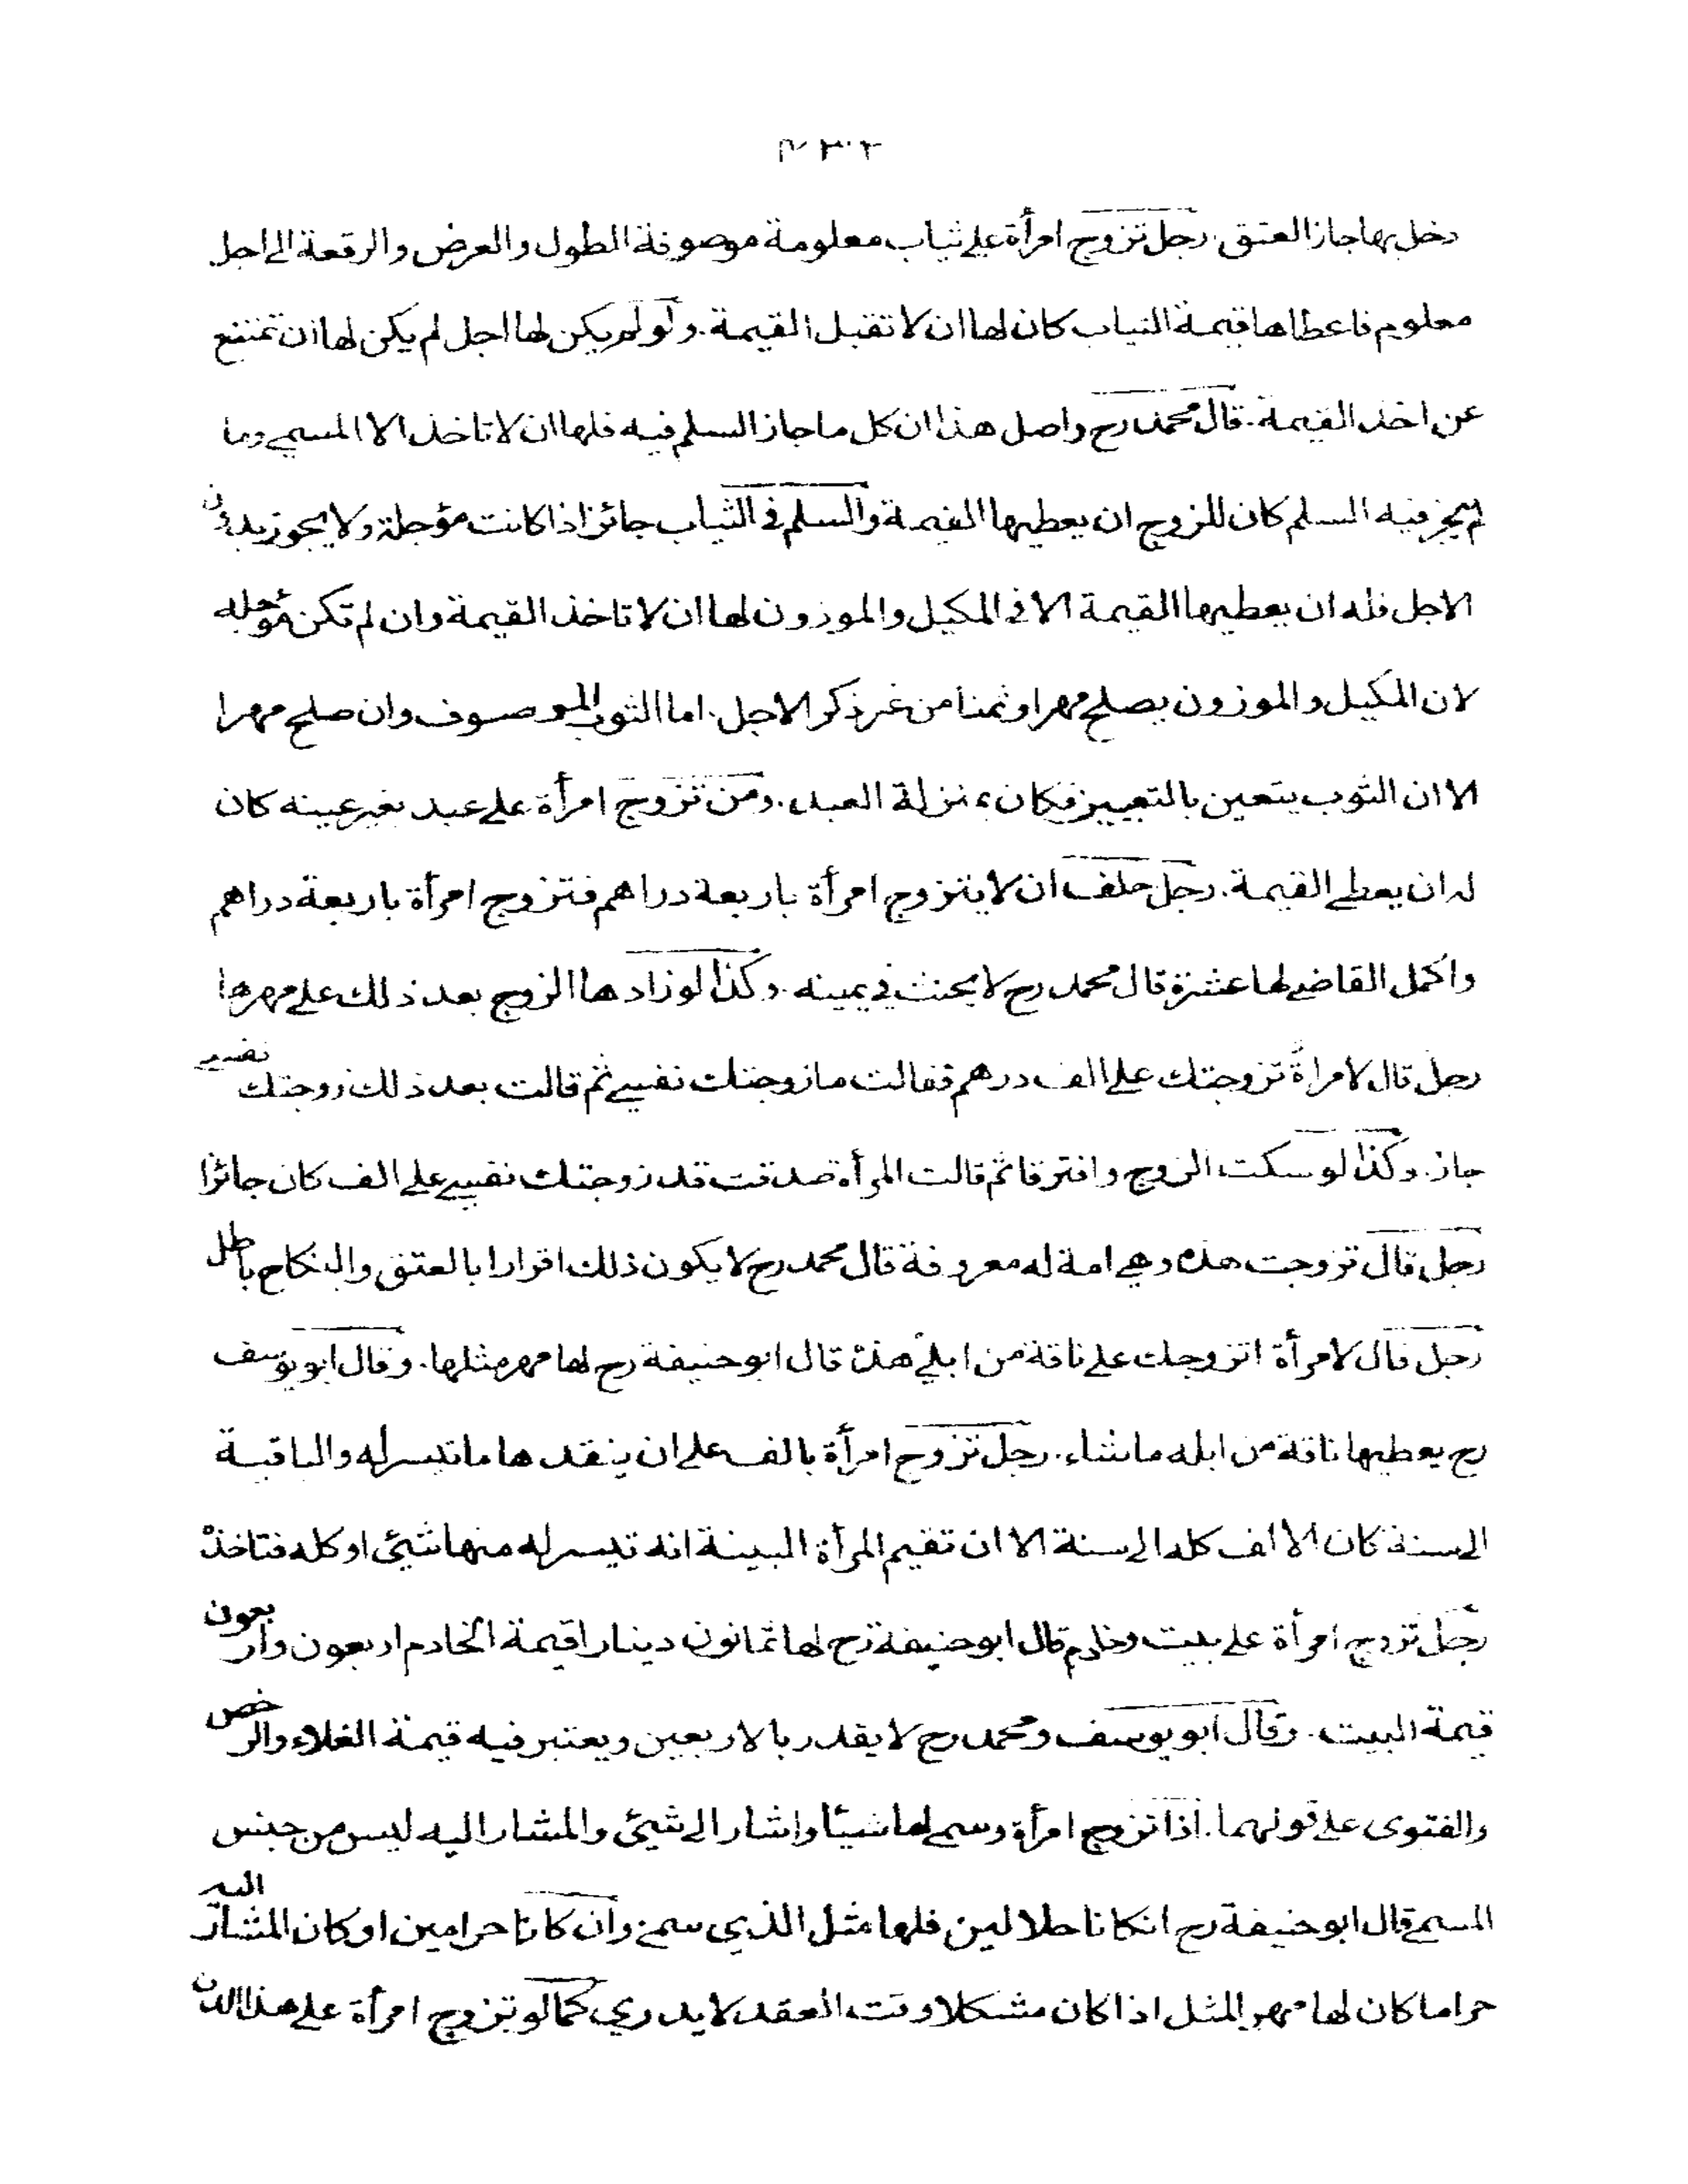 دخل بها جاز العتق. رجل تزوج امرأة على ثياب معلومة موصوفة الطول والعرض والرقعة الى اجل
معلوم فاعطاها قيمة الثياب كان لها ان لا تقبل القيمة. ولو لم يكن لها اجل لم يكن لها ان تمتنع
عن اخذ القيمة. قال محمد رح واصل هذا ان كل ما جاز السلم فيه فلها ان لا تاخذ الا المسمى وما
لم يجز فيه السلم كان للزوج ان يعطيها القيمة والسلم في الثياب جائز اذا كانت مؤجلة ولا يجوز بدون
الاجل فله ان يعطيها القيمة الا في المكيل والموزون لها ان لا تاخذ القيمة وان لم تكن مؤجله
لان المكيل والموزون يصلح مهرا وثمنا من غير ذكر الاجل. اما الثوب الموصوف وان صلح مهرا
الا ان الثوب يتعين بالتعيين فكان بمنزلة العبد. ومن تزوج امرأة على عبد بغير عينه كان
له ان يعطى القيمة. رجل حلف ان لا يتزوج امرأة باربعة دراهم فتزوج امرأة باربعة دراهم
واكمل القاضي لها عشرة قال محمد رح لا يحنث في يمينه. وكذا لو زادها الزوج بعد ذلك على مهرها
رجل قال لامراة تزوجتك على الف درهم فقالت ما زوجتك نفسي ثم قالت بعد ذلك زوجتك نفسي
جاز. وكذا لو سكت الزوج وافترقا ثم قالت المرأة صدقت قد زوجتك نفسي على الف كان جائزا
رجل قال تزوجت هذه وهي امة له معروفة قال محمد رح لا يكون ذلك اقرارا بالعتق والنكاح باطل
رجل قال لامرأة اتزوجك على ناقة من ابلي هذه قال ابو حنيفة رح لها مهر مثلها. وقال ابو يوسف
رح يعطيها ناقة من ابله ما شاء. رجل تزوج امرأة بالف على ان ينقدها ما تيسر له والباقية
الى سنة كان الالف كله الى سنة الا ان تقيم المرأة البينة انه تيسر له منها شيئ او كله فتاخذه
رجل تزوج امرأة على بيت وخادم قال ابو حنيفة رح لها ثمانون دينارا قيمة الخادم اربعون واربعون
قيمة البيت. وقال ابو يوسف ومحمد رح لا يقدر بالاربعين ويعتبر فيه قيمة الغلاء والرخص
والفتوى على قولهما. اذا تزوج امرأة وسمى لها شيئا واشار الى شيئ والمشار اليه ليس من جنس
المسمى قال ابو حنيفة رح انكانا حلالين فلها مثل الذي سمى وان كانا حرامين او كان المشار اليه
حراما كان لها مهر المثل اذا كان مشكلا وقت العقد لا يدري كما لو تزوج امرأة على هذا الدن